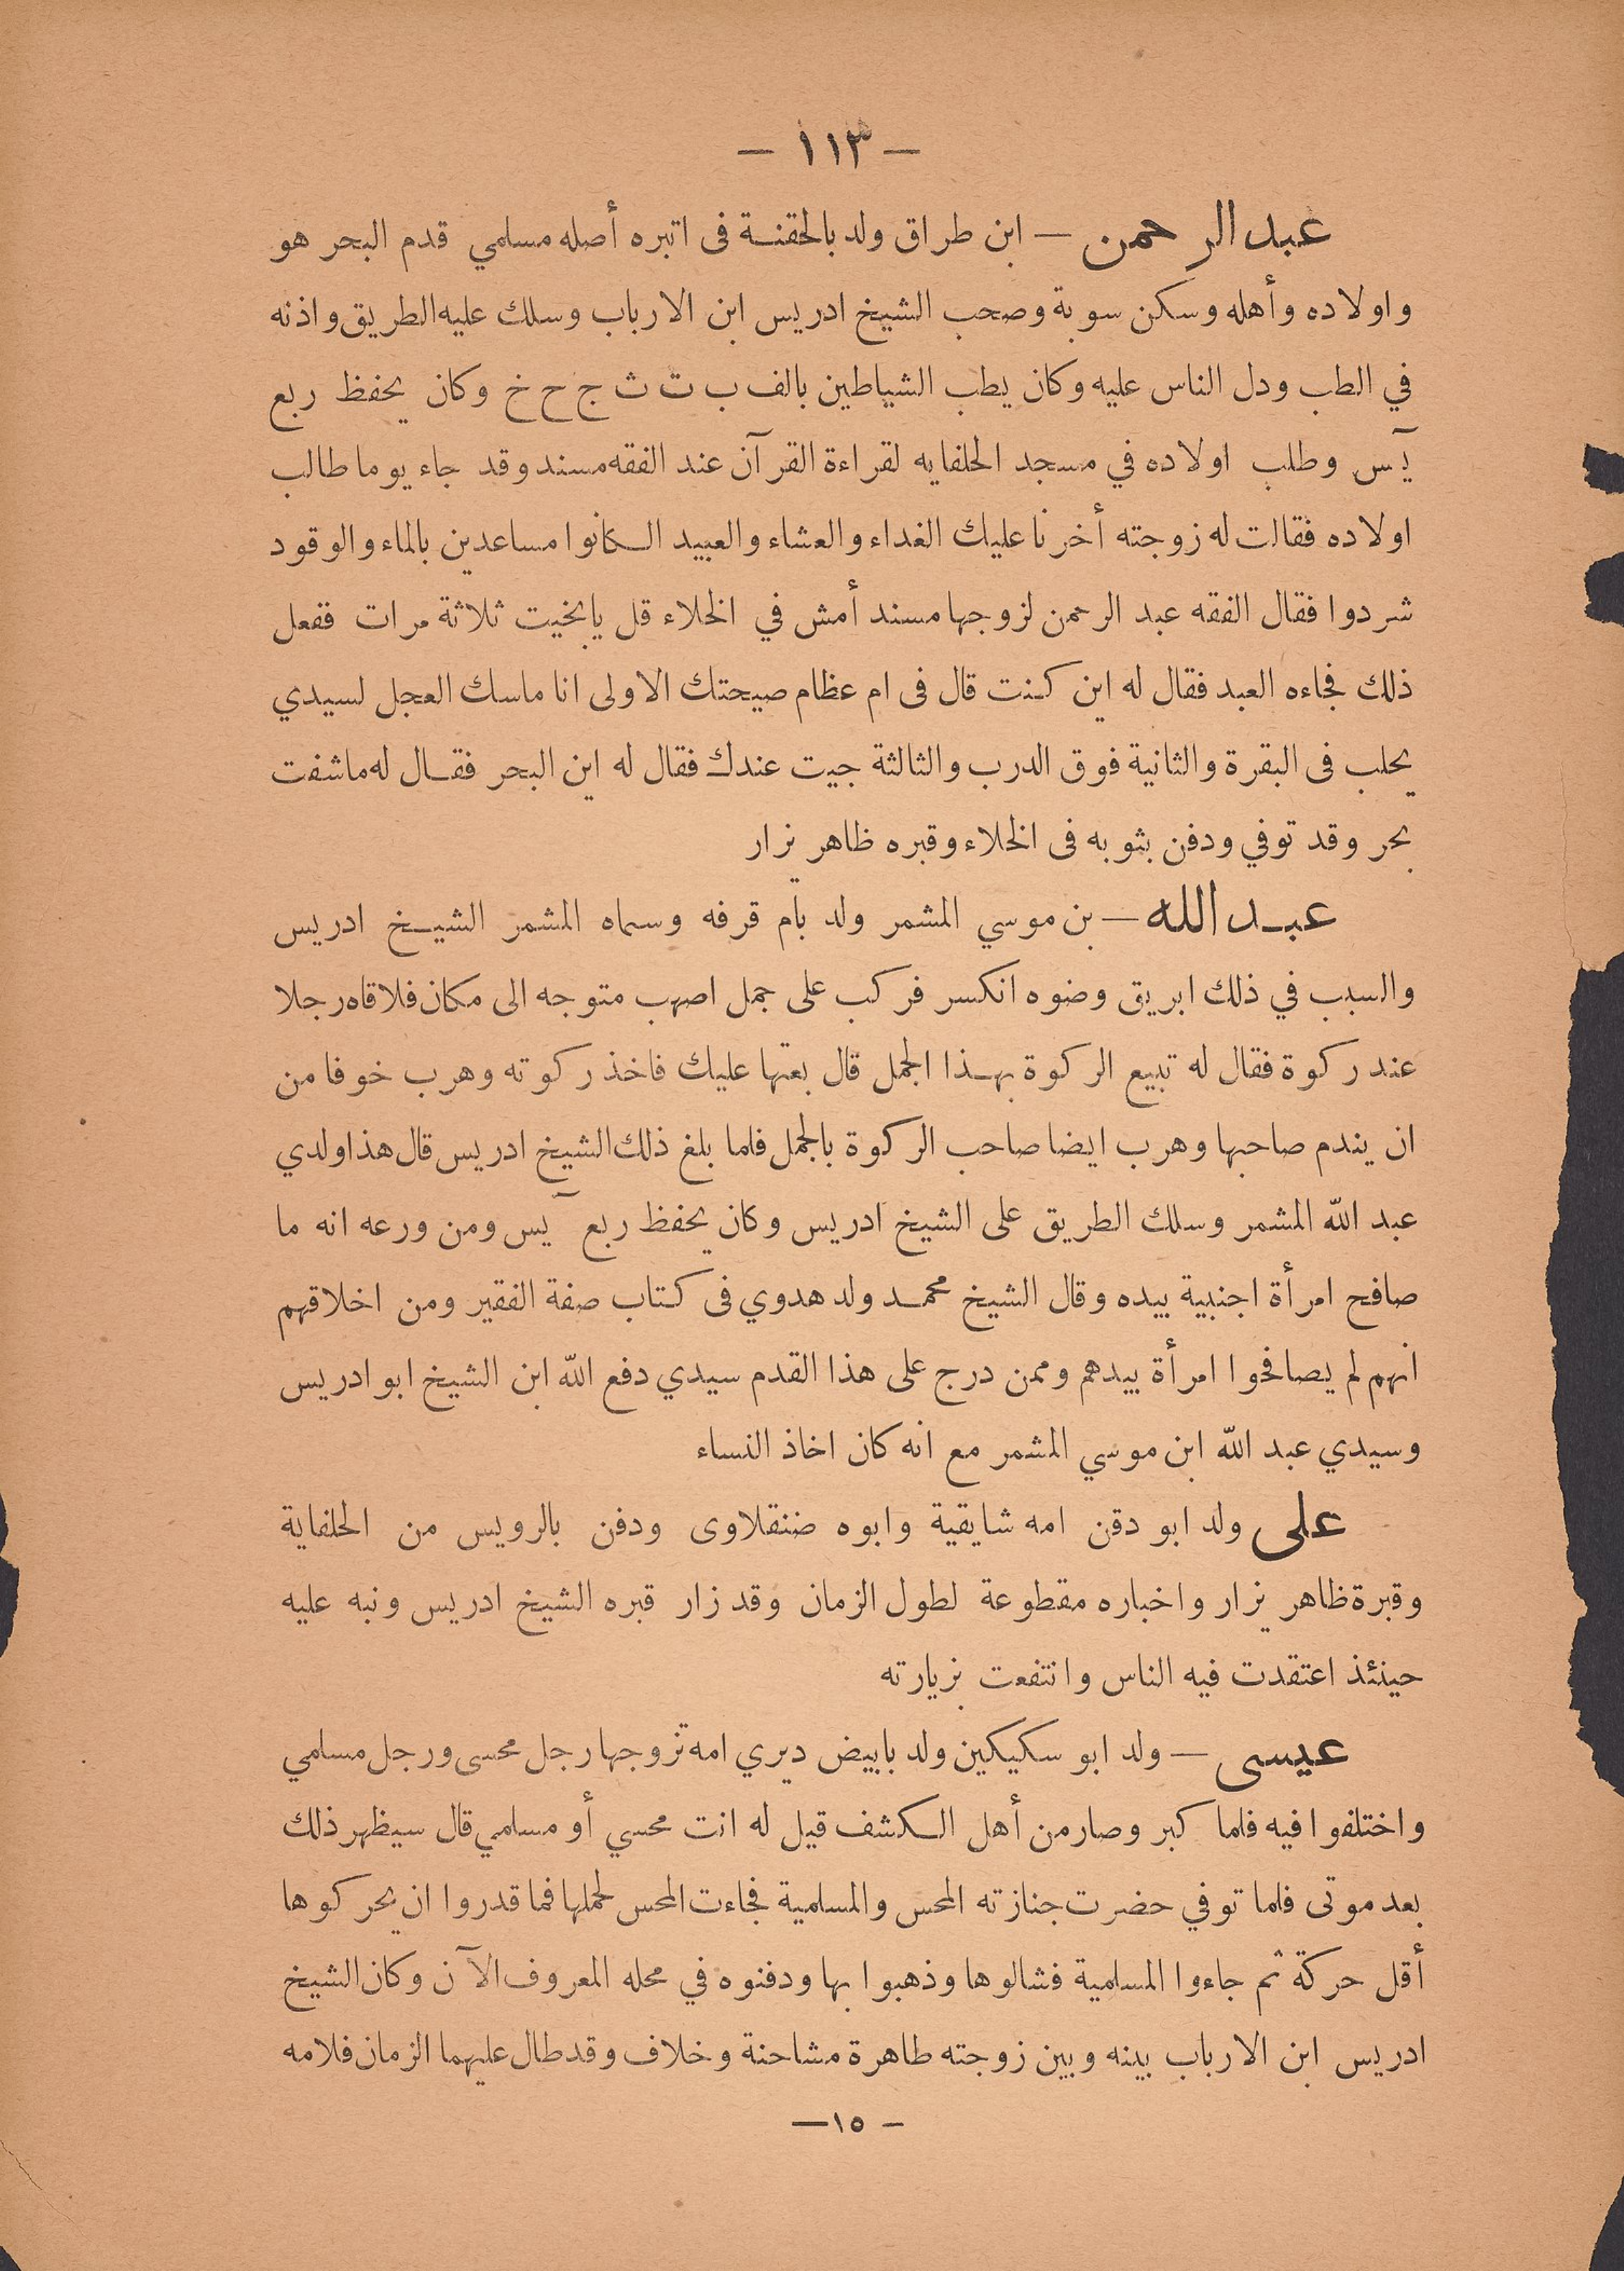 — ١١٣ —
عبد الرحمن — ابن طراق ولد بالحقنة فى اتبره أصله مسلمي قدم البحر هو
واولاده وأهله وسكن سوبة وصحب الشيخ ادريس ابن الارباب وسلك عليه الطريق واذنه
في الطب ودل الناس عليه وكان يطب الشياطين بالف ب ت ث ج ح خ وكان يحفظ ربع
يآس وطلب اولاده في مسجد الحلفايه لقراءة القرآن عند الفقه مسند وقد جاء يوما طالب
اولاده فقالت له زوجته أخرنا عليك الغداء والعشاء والعبيد الكانوا مساعدين بالماء والوقود
شردوا فقال الفقه عبد الرحمن لزوجها مسند أمش في الخلاء قل يابخيت ثلاثة مرات ففعل
ذلك فجاءه العبد فقال له اين كنت قال فى ام عظام صيحتك الاولى انا ماسك العجل لسيدي
يحلب فى البقرة والثانية فوق الدرب والثالثة جيت عندك فقال له اين البحر فقال له ماشفت
بحر وقد توفي ودفن بثوبه فى الخلاء وقبره ظاهر يزار
عبد الله — بن موسي المشمر ولد بأم قرفه وسماه المشمر الشيخ ادريس
والسبب في ذلك ابريق وضوه انكسر فركب على جمل اصهب متوجه الى مكان فلاقاه رجلا
عند ركوة فقال له تبيع الركوة بهذا الجمل قال بعتها عليك فاخذ ركوته وهرب خوفا من
ان يندم صاحبها وهرب ايضا صاحب الركوة بالجمل فلما بلغ ذلك الشيخ ادريس قال هذا ولدي
عبد الله المشمر وسلك الطريق على الشيخ ادريس وكان يحفظ ربع يآس ومن ورعه انه ما
صافح امرأة اجنبية بيده وقال الشيخ محمد ولد هدوي فى كتاب صفة الفقير ومن اخلاقهم
انهم لم يصافحوا امرأة بيدهم وممن درج على هذا القدم سيدي دفع الله ابن الشيخ ابو ادريس
وسيدي عبد الله ابن موسي المشمر مع انه كان اخاذ النساء
على ولد ابو دقن امه شايقية وابوه ضنقلاوى ودفن بالرويس من الحلفاية
وقبرة ظاهر يزار واخباره مقطوعة لطول الزمان وقد زار قبره الشيخ ادريس ونبه عليه
حينئذ اعتقدت فيه الناس وانتفعت بزيارته
عيسى — ولد ابو سكيكين ولد بابيض ديري امه تزوجها رجل محسى ورجل مسلمي
واختلفوا فيه فلما كبر وصار من أهل الكشف قيل له انت محسي أو مسلمي قال سيظهر ذلك
بعد موتى فلما توفي حضرت جنازته المحس والمسلمية فجاءت المحس لحملها فما قدروا ان يحركوها
أقل حركة ثم جاءوا المسلمية فشالوها وذهبوا بها ودفنوه في محله المعروف الآن وكان الشيخ
ادريس ابن الارباب بينه وبين زوجته طاهرة مشاحنة وخلاف وقد طال عليهما الزمان فلامه
— ١٥ —